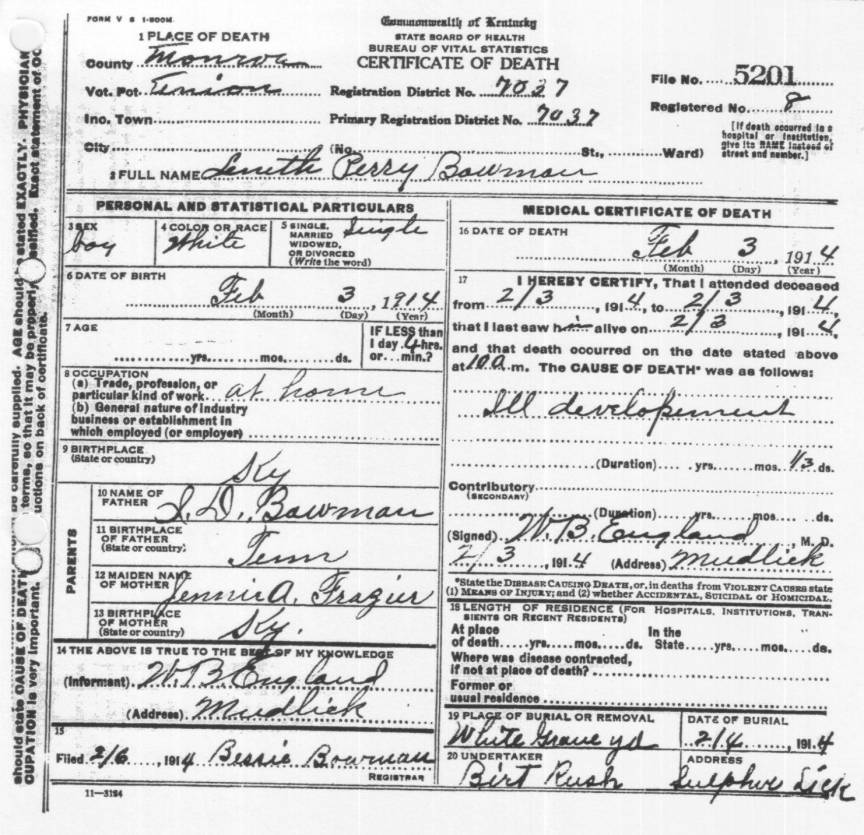 FORM V S 1-500M.
Commonwealth of Kentucky
STATE BOARD OF HEALTH
BUREAU OF VITAL STATISTICS
CERTIFICATE OF DEATH
1 PLACE OF DEATH
County Monroe
Vot. Pct. Union
Inc. Town
City (No. St., Ward)
Registration District No. 7037
Primary Registration District No. 7037
File No. 5201
Registered No. 8
[If death occurred in a
hospital or institution,
give its NAME instead of
street and number.]
2 FULL NAME Perry Bowman
PERSONAL AND STATISTICAL PARTICULARS
3 SEX
boy
4 COLOR OR RACE
White
5 SINGLE, Single
MARRIED
WIDOWED,
OR DIVORCED
(Write the word)
6 DATE OF BIRTH
Feb 3, 1914
(Month) (Day) (Year)
7 AGE
yrs. mos. ds.
IF LESS than
1 day 4 hrs.
or min.?
8 OCCUPATION
(a) Trade, profession, or
particular kind of work at home
(b) General nature of industry
business or establishment in
which employed (or employer)
9 BIRTHPLACE
(State or country)
Ky
PARENTS
10 NAME OF
FATHER
D. Bowman
11 BIRTHPLACE
OF FATHER
(State or country)
Tenn
12 MAIDEN NAME
OF MOTHER
Jennie A. Frazier
13 BIRTHPLACE
OF MOTHER
(State or country)
Ky.
14 THE ABOVE IS TRUE TO THE BEST OF MY KNOWLEDGE
(Informant) W. B. England
(Address) Mudlick
15
Filed 2/6, 1914 Bessie Bowman
REGISTRAR
11-3184
MEDICAL CERTIFICATE OF DEATH
16 DATE OF DEATH
Feb 3, 1914
(Month) (Day) (Year)
17 I HEREBY CERTIFY, That I attended deceased
from 2/3, 1914, to 2/3, 1914,
that I last saw him alive on 2/3, 1914,
and that death occurred on the date stated above
at 10 a m. The CAUSE OF DEATH* was as follows:
Ill developement
(Duration) yrs. mos. ds.
Contributory
(SECONDARY)
(Duration) yrs. mos. ds.
(Signed) W. B. England, M. D.
2/3, 1914 (Address) Mudlick
*State the DISEASE CAUSING DEATH, or, in deaths from VIOLENT CAUSES state
(1) MEANS OF INJURY; and (2) whether ACCIDENTAL, SUICIDAL or HOMICIDAL.
18 LENGTH OF RESIDENCE (FOR HOSPITALS, INSTITUTIONS, TRAN-
SIENTS OR RECENT RESIDENTS)
At place In the
of death yrs. mos. ds. State yrs. mos. ds.
Where was disease contracted,
if not at place of death?
Former or
usual residence
19 PLACE OF BURIAL OR REMOVAL
White Grave yd
DATE OF BURIAL
2/4, 1914
20 UNDERTAKER
Birt Rush
ADDRESS
Sulphur Lick
stated EXACTLY. PHYSICIAN
Exact statement of OC
be carefully supplied. AGE should
terms, so that it may be properly
on back of certificate.
should state CAUSE OF DEATH
CUPATION is very important.